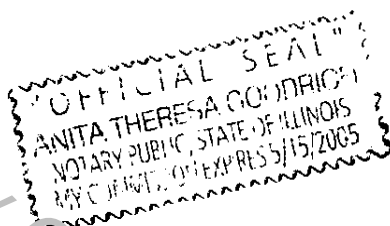 "OFFICIAL SEAL"
ANITA THERESA GOODRICH
NOTARY PUBLIC, STATE OF ILLINOIS
MY COMMISSION EXPIRES 5/15/2005